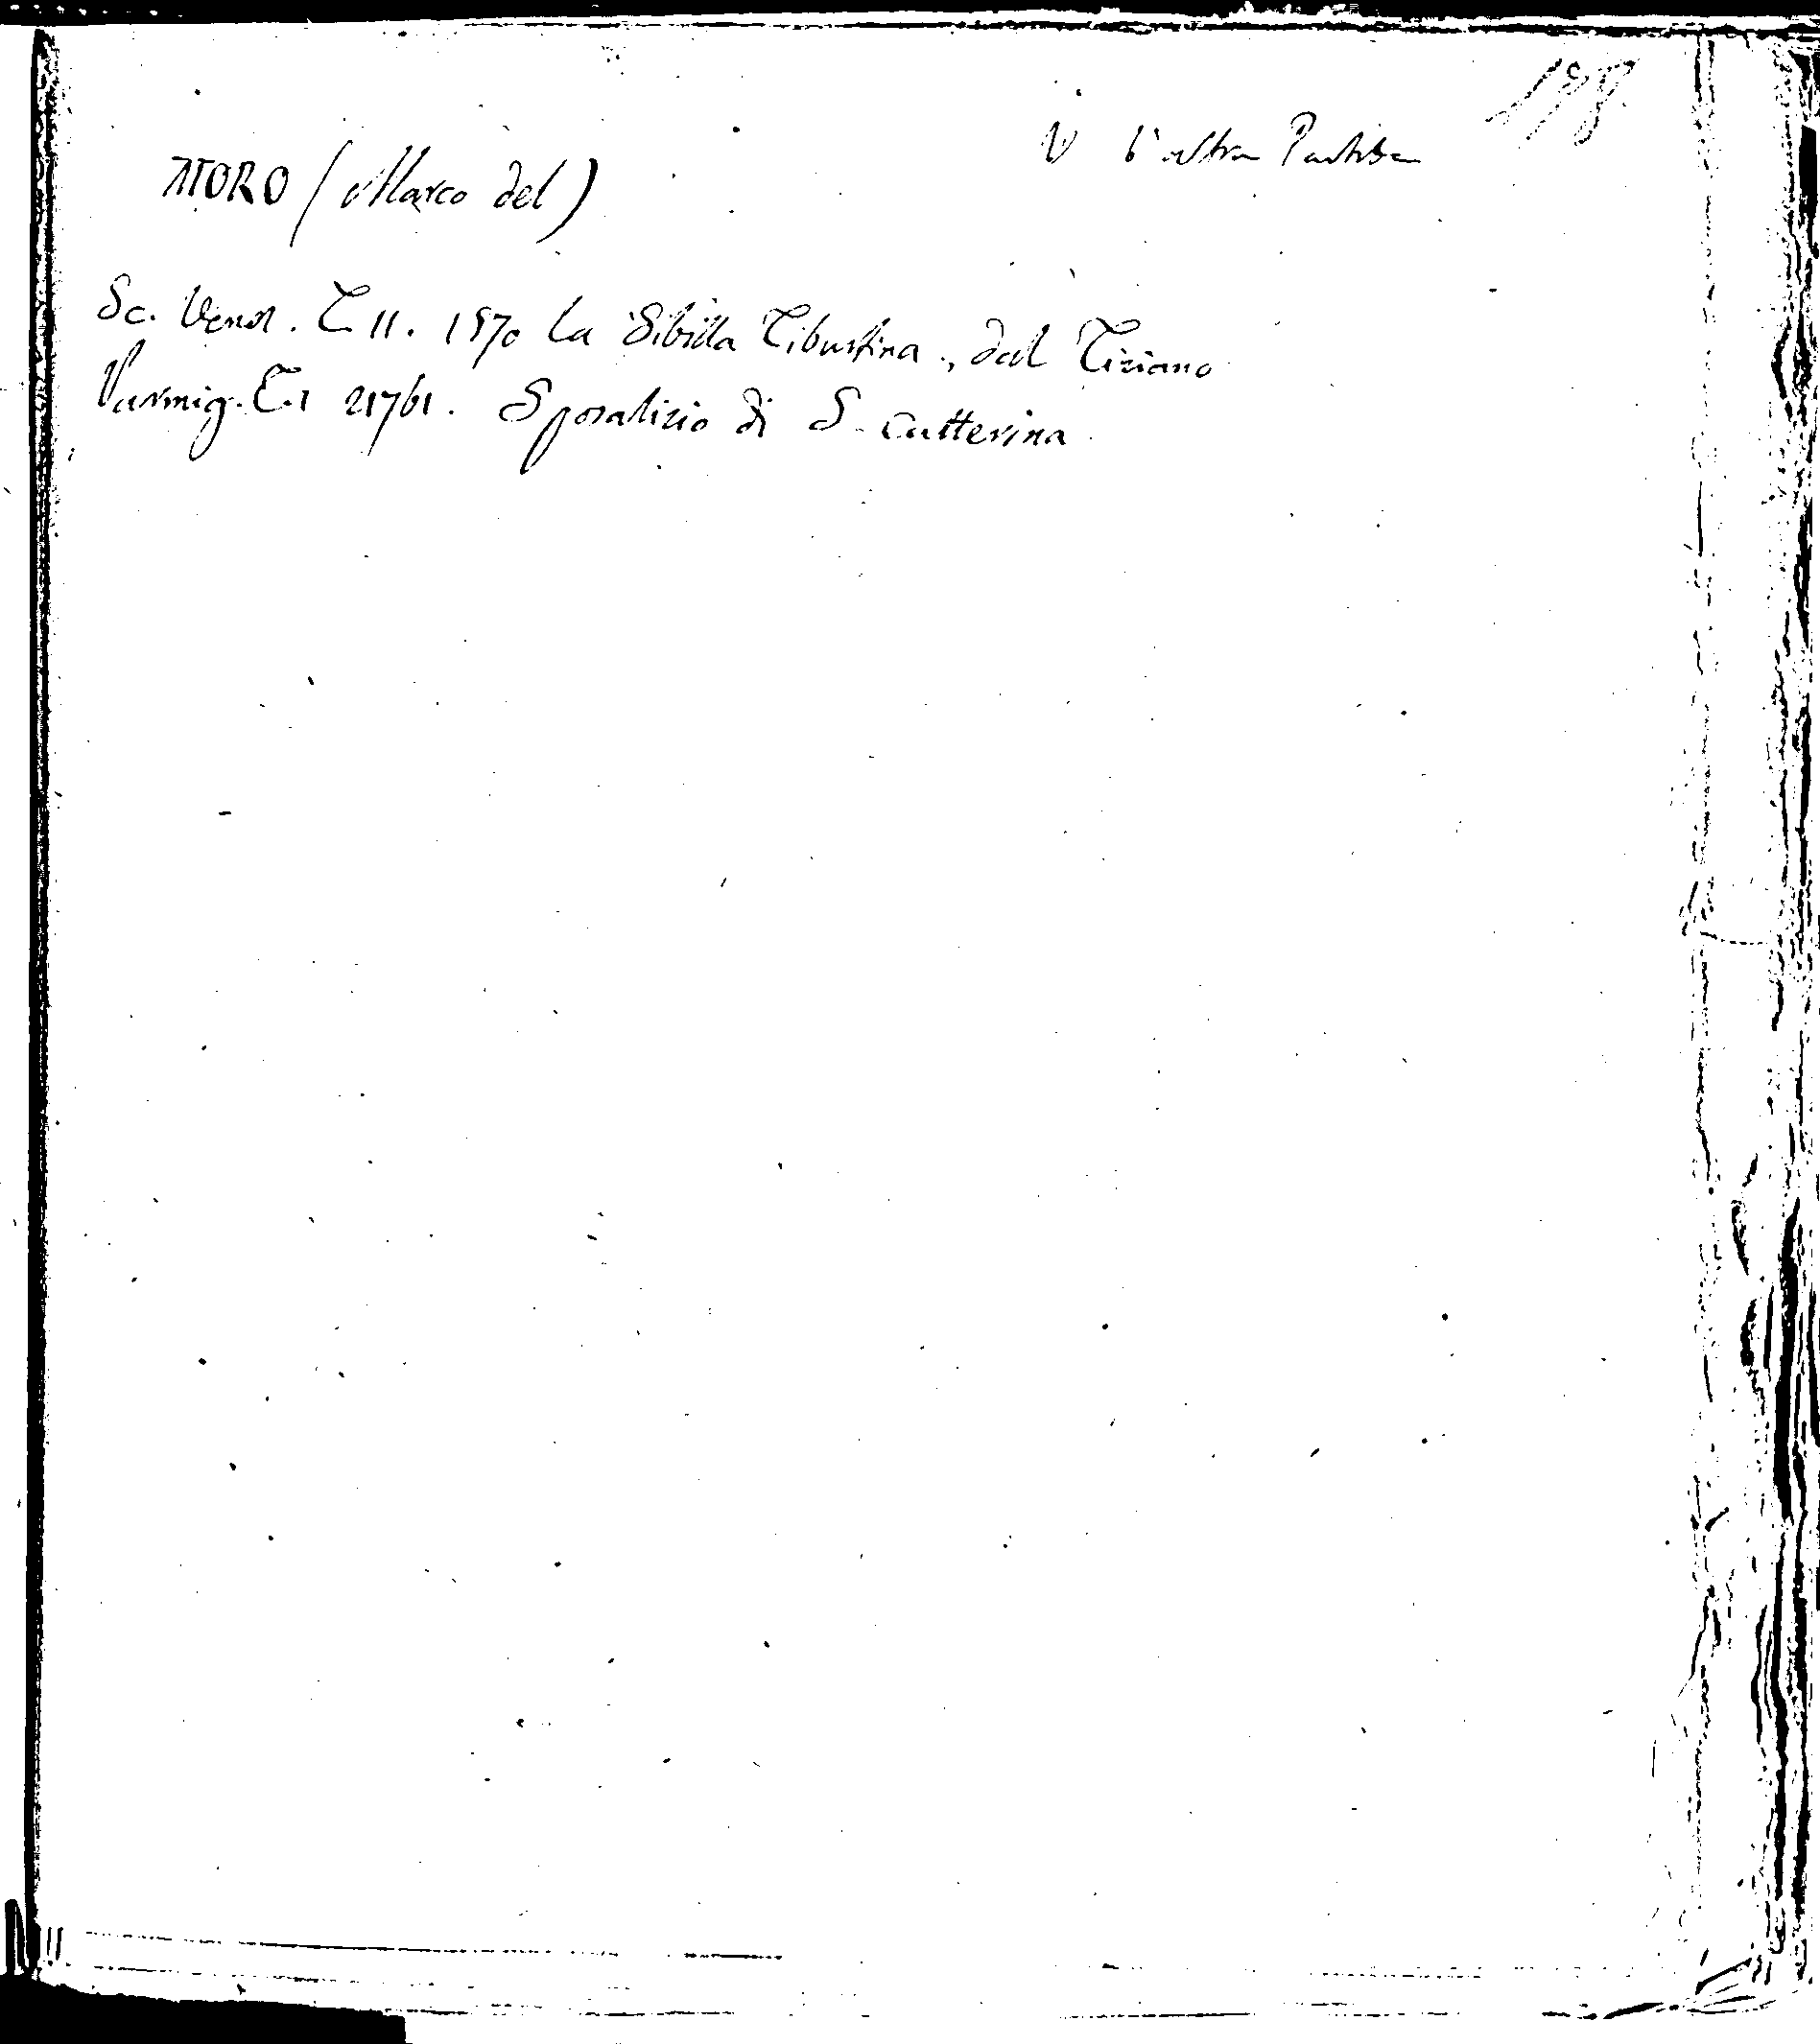 198
V l'altra Partita
MORO (Marco del)
Sc. Venez. T. II. 1570 La Sibilla Tiburtina, dal Tiziano
Parmig. T. I 21761. Sposalizio di S. Catterina